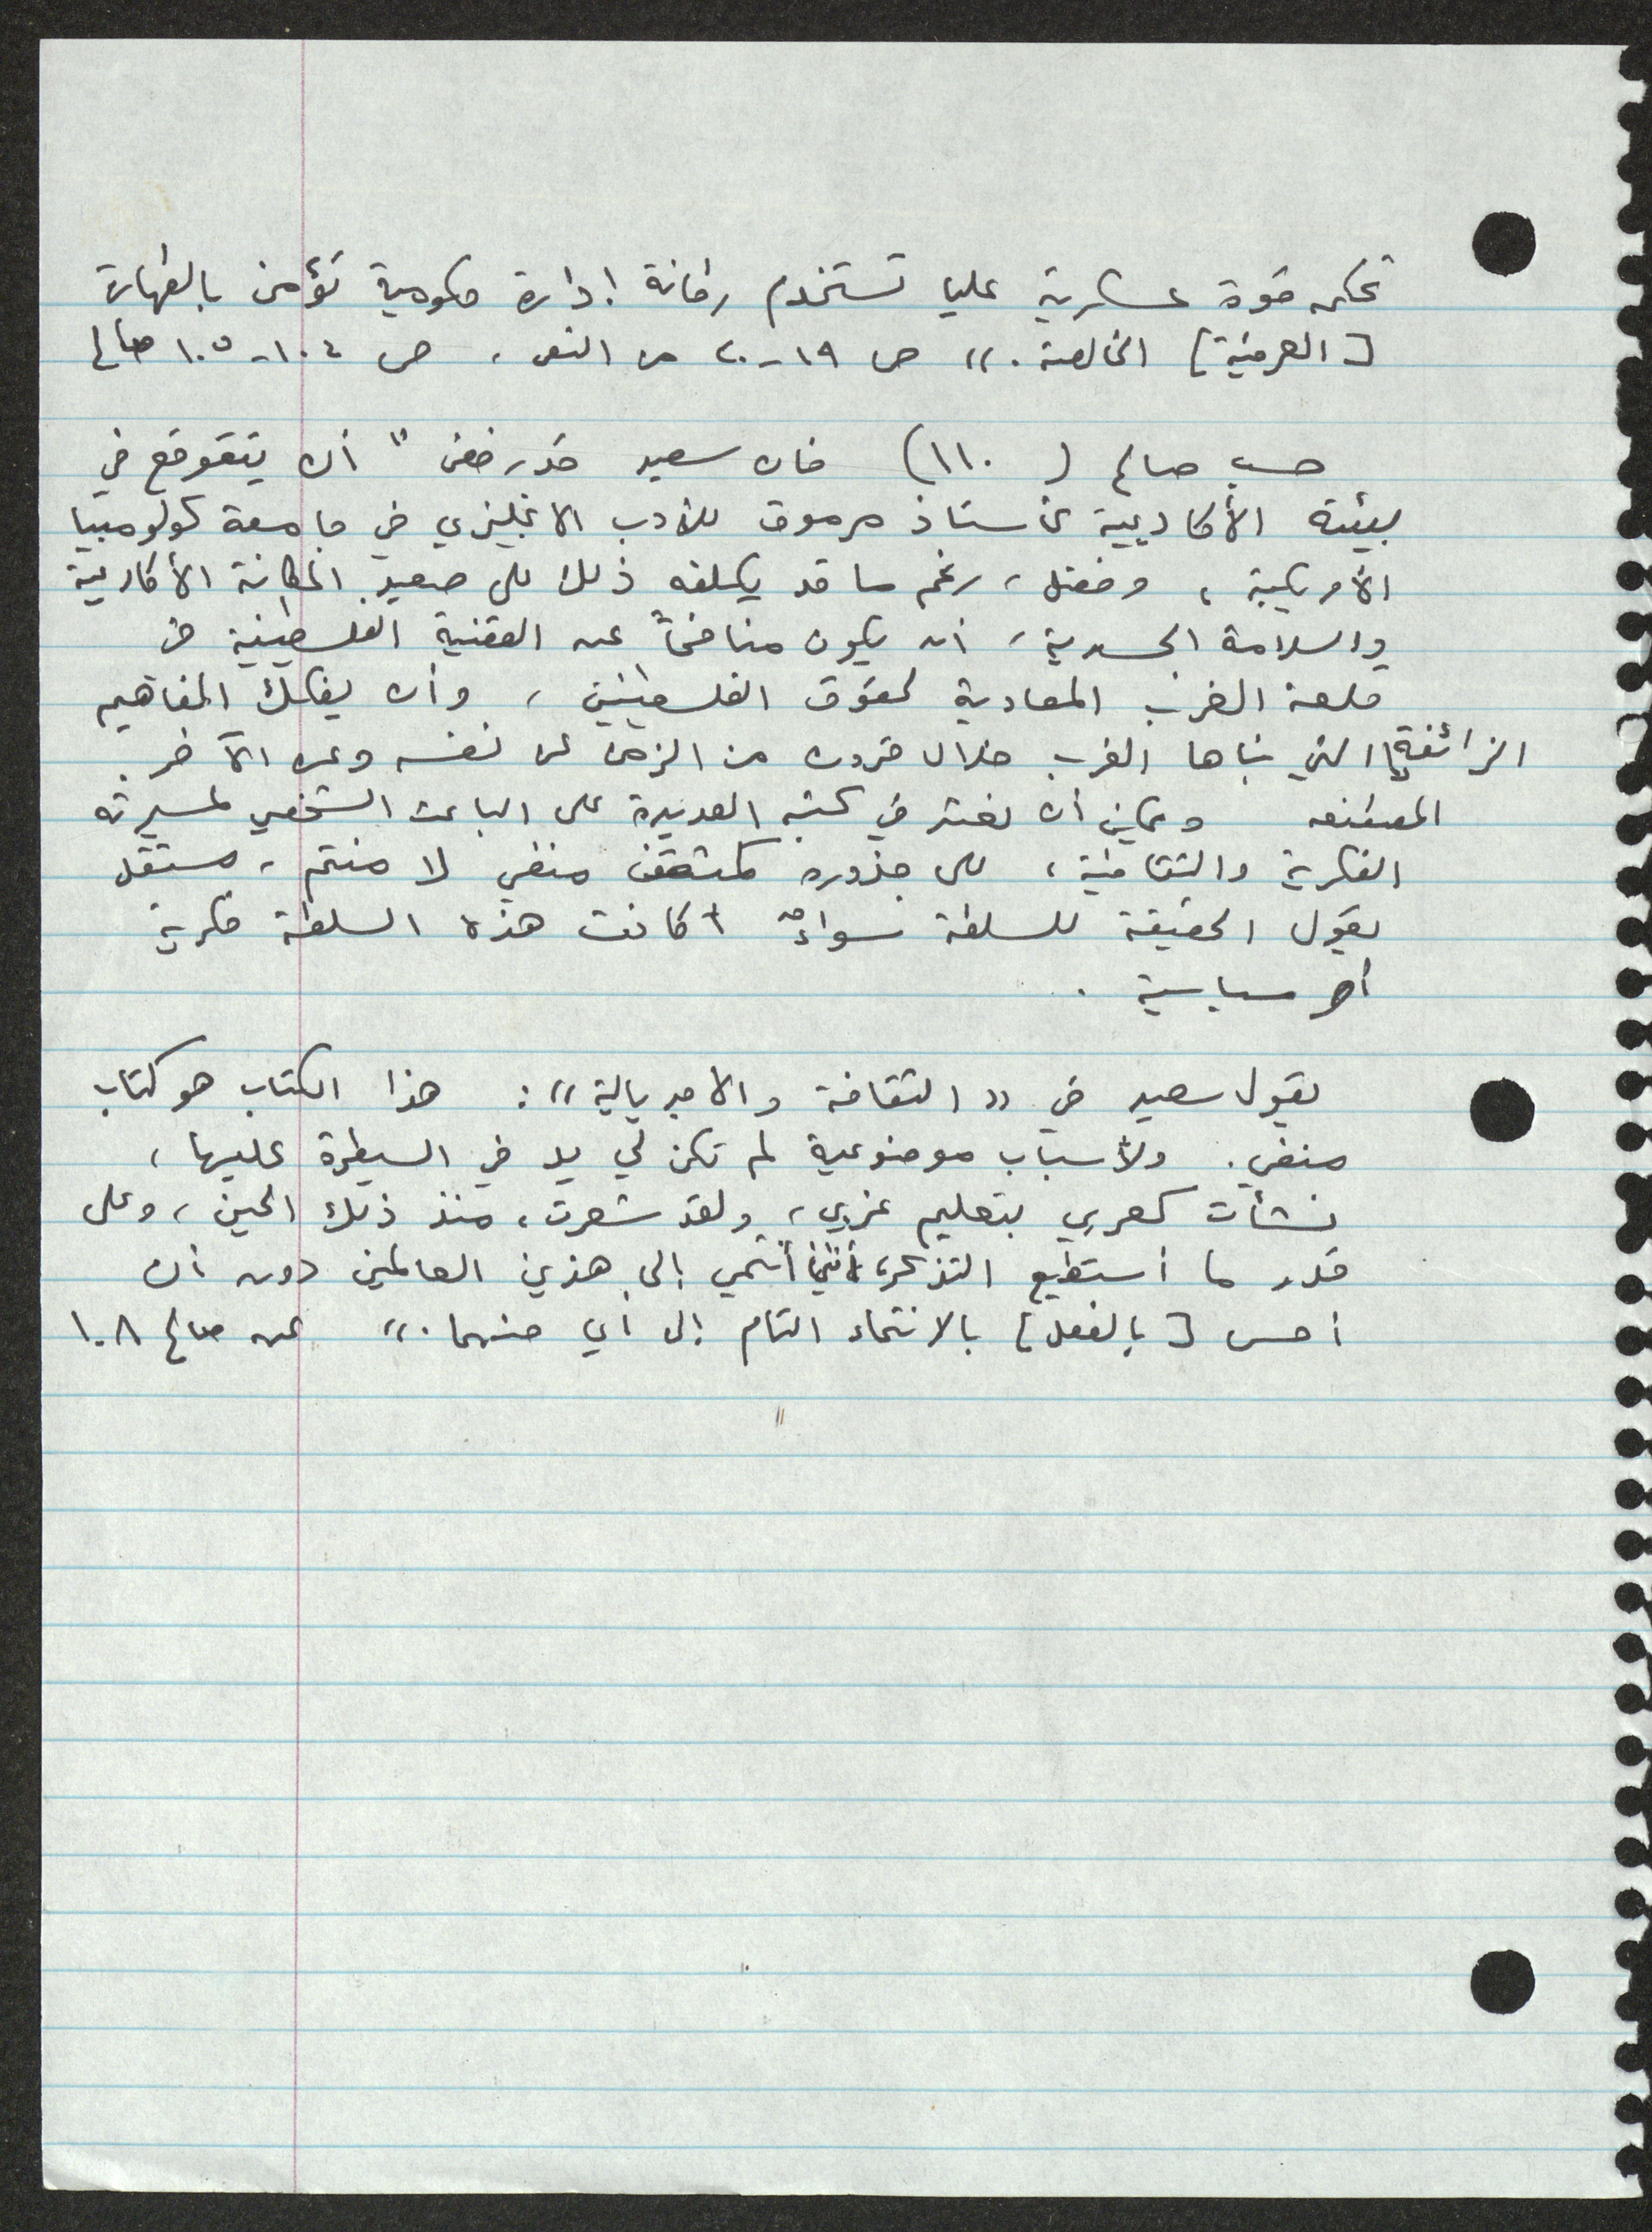 تحكمه قوة عسكرية عليا تستخدم رطانة إدارة حكومية تؤمن بالطهارة
[العرقية] الخالصة.» ص ١٩-٢٠ من النص، ص ١٠٤-١٠٥ صالح
حسب صالح (١١٠) فان سعيد قد رفض "أن يتقوقع في
بيئته الأكاديمية كأستاذ مرموق للأدب الانجليزي في جامعة كولومبيا
الأمريكية، وفضل، رغم ما قد يكلفه ذلك على صعيد المكانة الأكاديمية
والسلامة الجسدية، أن يكون منافحاً عن القضية الفلسطينية في
قلعة الغرب المعادية لحقوق الفلسطينيين، وأن يفكك المفاهيم
الزائفة التي بناها الغرب خلال قرون من الزمن عن نفسه وعن الآخر.
المصطنعه ويمكن أن نعثر في كتبه العديدة على الباعث الشخصي لمسيرته
الفكرية والثقافية، على جذوره كمثقف منفي لا منتم، مستقل
يقول الحقيقة للسلطة سواءً أكانت هذه السلطة فكرية
أم سياسية.
يقول سعيد في «الثقافة والامبريالية»: هذا الكتاب هو كتاب
منفي. ولأسباب موضوعية لم تكن لي يد في السيطرة عليها،
نشأت كعربي بتعليم غربي، ولقد شعرت، منذ ذلك الحين، وعلى
قدر ما أستطيع التذكر، أنني أنتمي إلى هذين العالمين دون أن
أحس [بالفعل] بالانتماء التام إلى أي منهما.» عن صالح ١٠٨